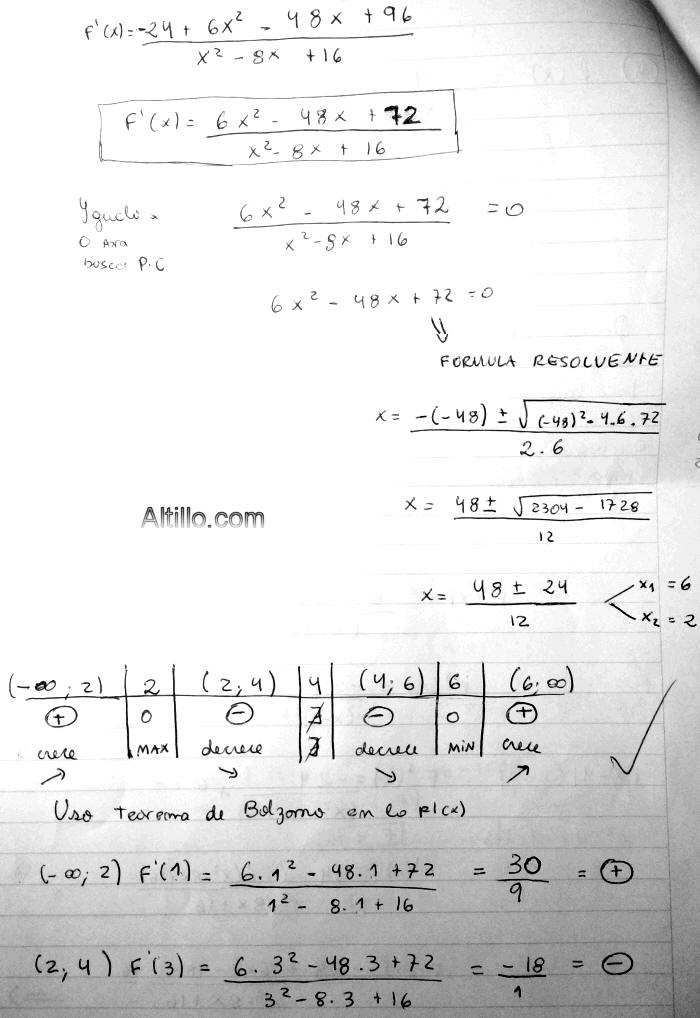 F'(x)= -24 + 6x² - 48x + 96 / x² - 8x + 16
F'(x) = 6x² - 48x + 72 / x² - 8x + 16
Igualo a 6x² - 48x + 72 / x² - 8x + 16 = 0
0 para
buscar P.C
6x² - 48x + 72 = 0
⇓
FORMULA RESOLVENTE
x = -(-48) ± √(-48)² - 4.6.72 / 2.6
Altillo.com
x = 48 ± √2304 - 1728 / 12
x = 48 ± 24 / 12 x₁ = 6
x₂ = 2
(-∞; 2) | 2 | (2; 4) | 4 | (4; 6) | 6 | (6; ∞)
⊕ | 0 | ⊖ | ∄ | ⊖ | 0 | ⊕
crece | MAX | decrece | ∄ | decrece | MIN | crece
↗ ↘ ↘ ↗ ✓
Uso teorema de Bolzano en la F'(x)
(-∞; 2) F'(1) = 6.1² - 48.1 + 72 / 1² - 8.1 + 16 = 30 / 9 = ⊕
(2; 4) F'(3) = 6.3² - 48.3 + 72 / 3² - 8.3 + 16 = -18 / 1 = ⊖